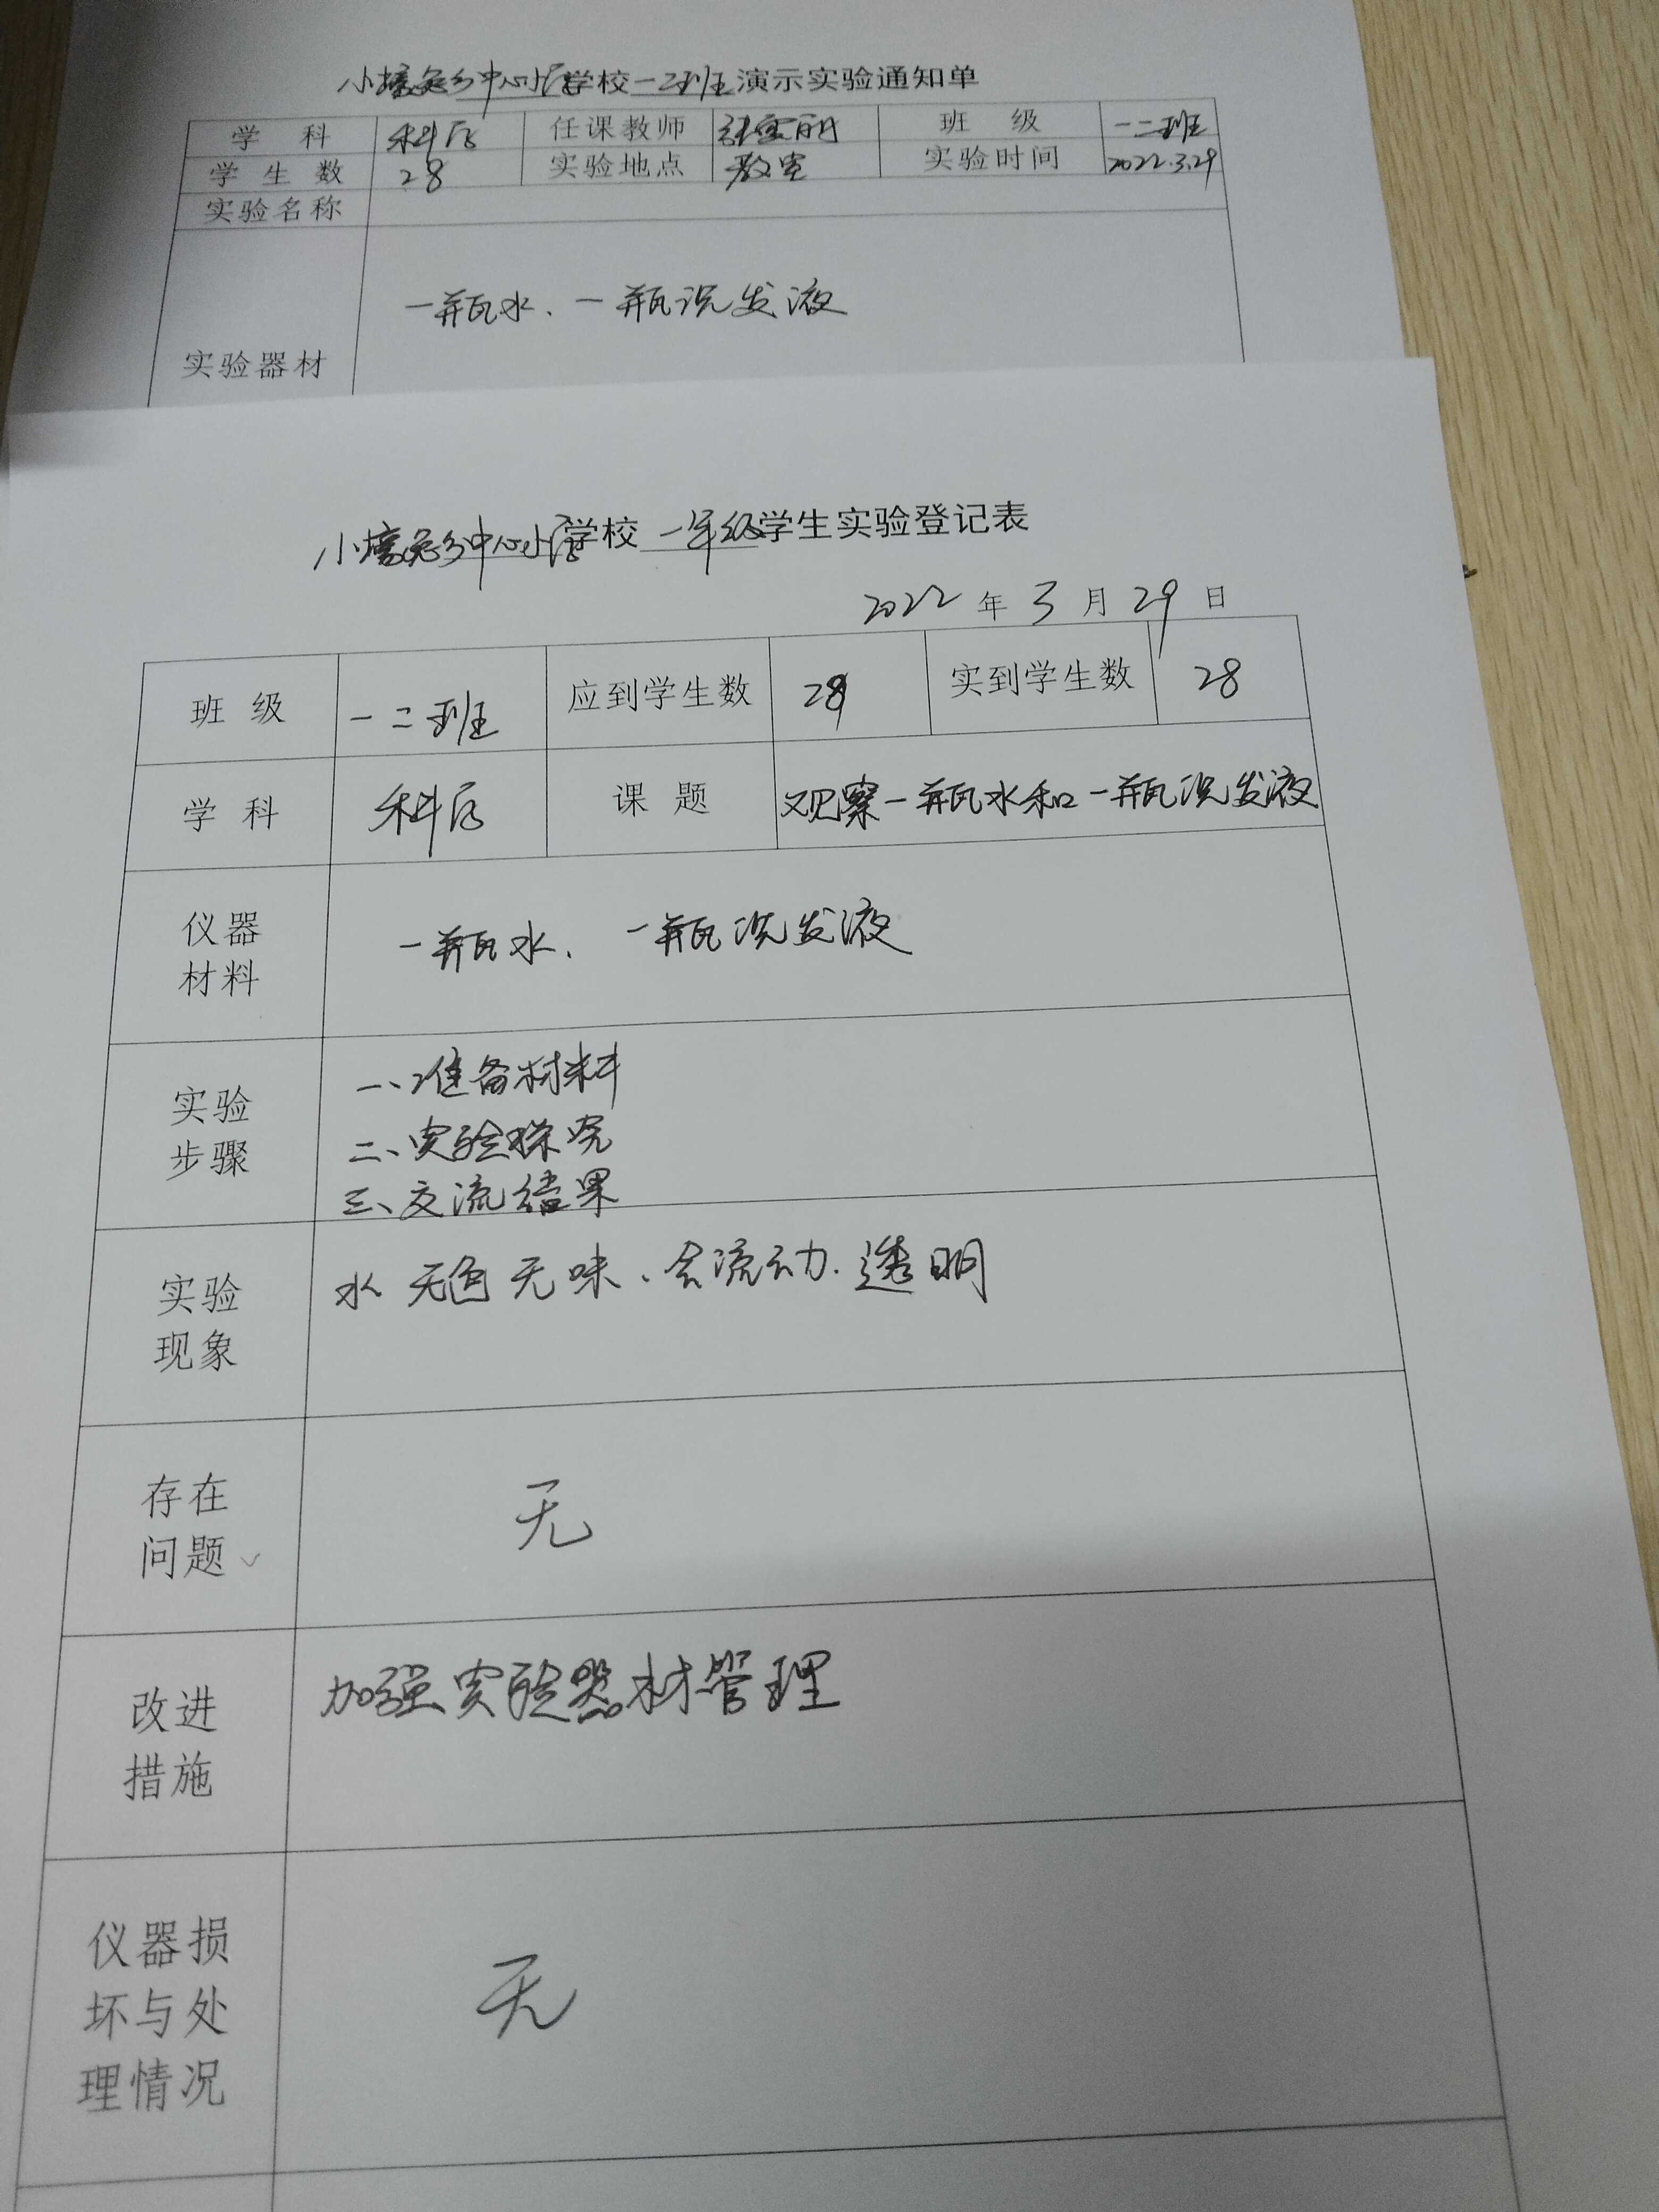 小壕兔乡中心小学学校一二班演示实验通知单
学 科 科学 任课教师 班 级 一二班
学 生 数 28 实验地点 教室 实验时间 2022.3.29
实验名称
一瓶水、一瓶洗发液
实验器材
小壕兔乡中心小学学校 一年级学生实验登记表
2022 年 3 月 29 日
班 级 一二班 应到学生数 28 实到学生数 28
学 科 科学 课 题 观察一瓶水和一瓶洗发液
仪器
材料
一瓶水、一瓶洗发液
实验
步骤
一、准备材料
二、实验探究
三、交流结果
实验
现象
水 无色 无味、会流动、透明
存在
问题
无
改进
措施
加强实验器材管理
仪器损
坏与处
理情况
无